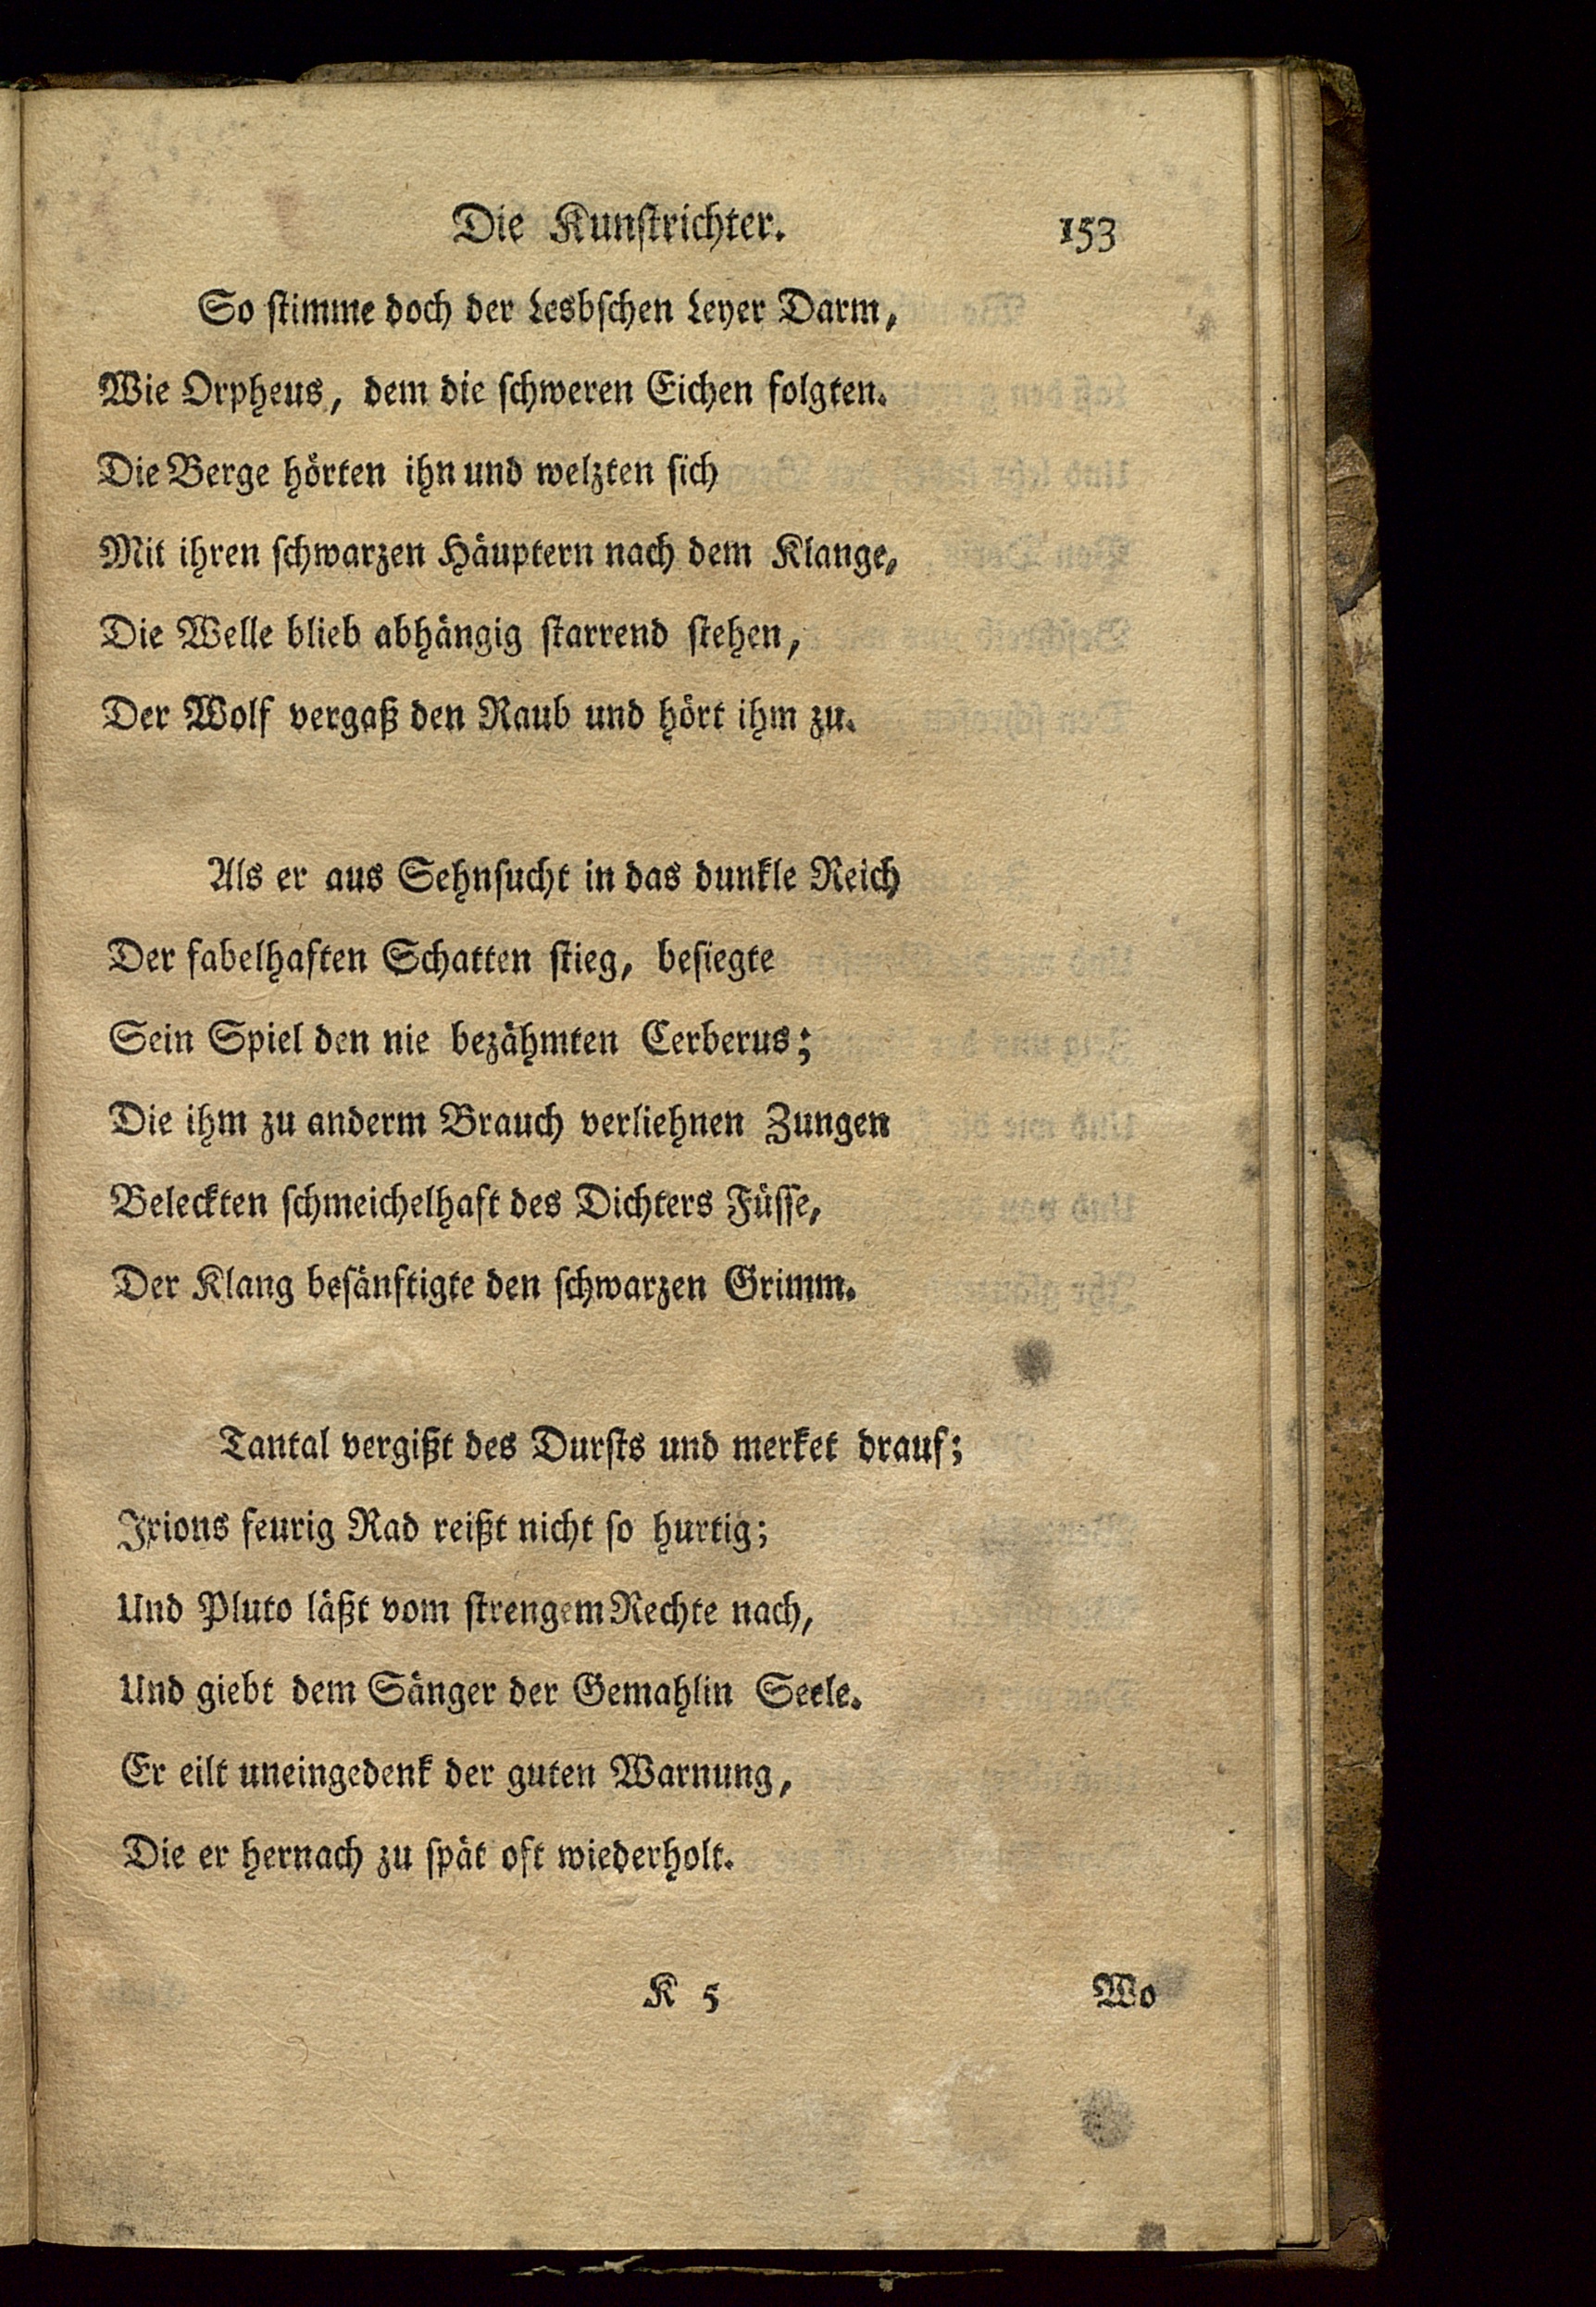 Die Kunſtrichter. 153
So ſtimme doch der Lesbſchen Leyer Darm,
Wie Orpheus, dem die ſchweren Eichen folgten.
Die Berge hörten ihn und welzten ſich
Mit ihren ſchwarzen Häuptern nach dem Klange,
Die Welle blieb abhängig ſtarrend ſtehen,
Der Wolf vergaß den Raub und hört ihm zu.
Als er aus Sehnſucht in das dunkle Reich
Der fabelhaften Schatten ſtieg, beſiegte
Sein Spiel den nie bezähmten Cerberus;
Die ihm zu anderm Brauch verliehnen Zungen
Beleckten ſchmeichelhaft des Dichters Füſſe,
Der Klang beſänftigte den ſchwarzen Grimm.
Tantal vergißt des Durſts und merket drauf;
Ixions feurig Rad reißt nicht ſo hurtig;
Und Pluto läßt vom ſtrengem Rechte nach,
Und giebt dem Sänger der Gemahlin Seele.
Er eilt uneingedenk der guten Warnung,
Die er hernach zu ſpät oft wiederholt.
K 5 Wo